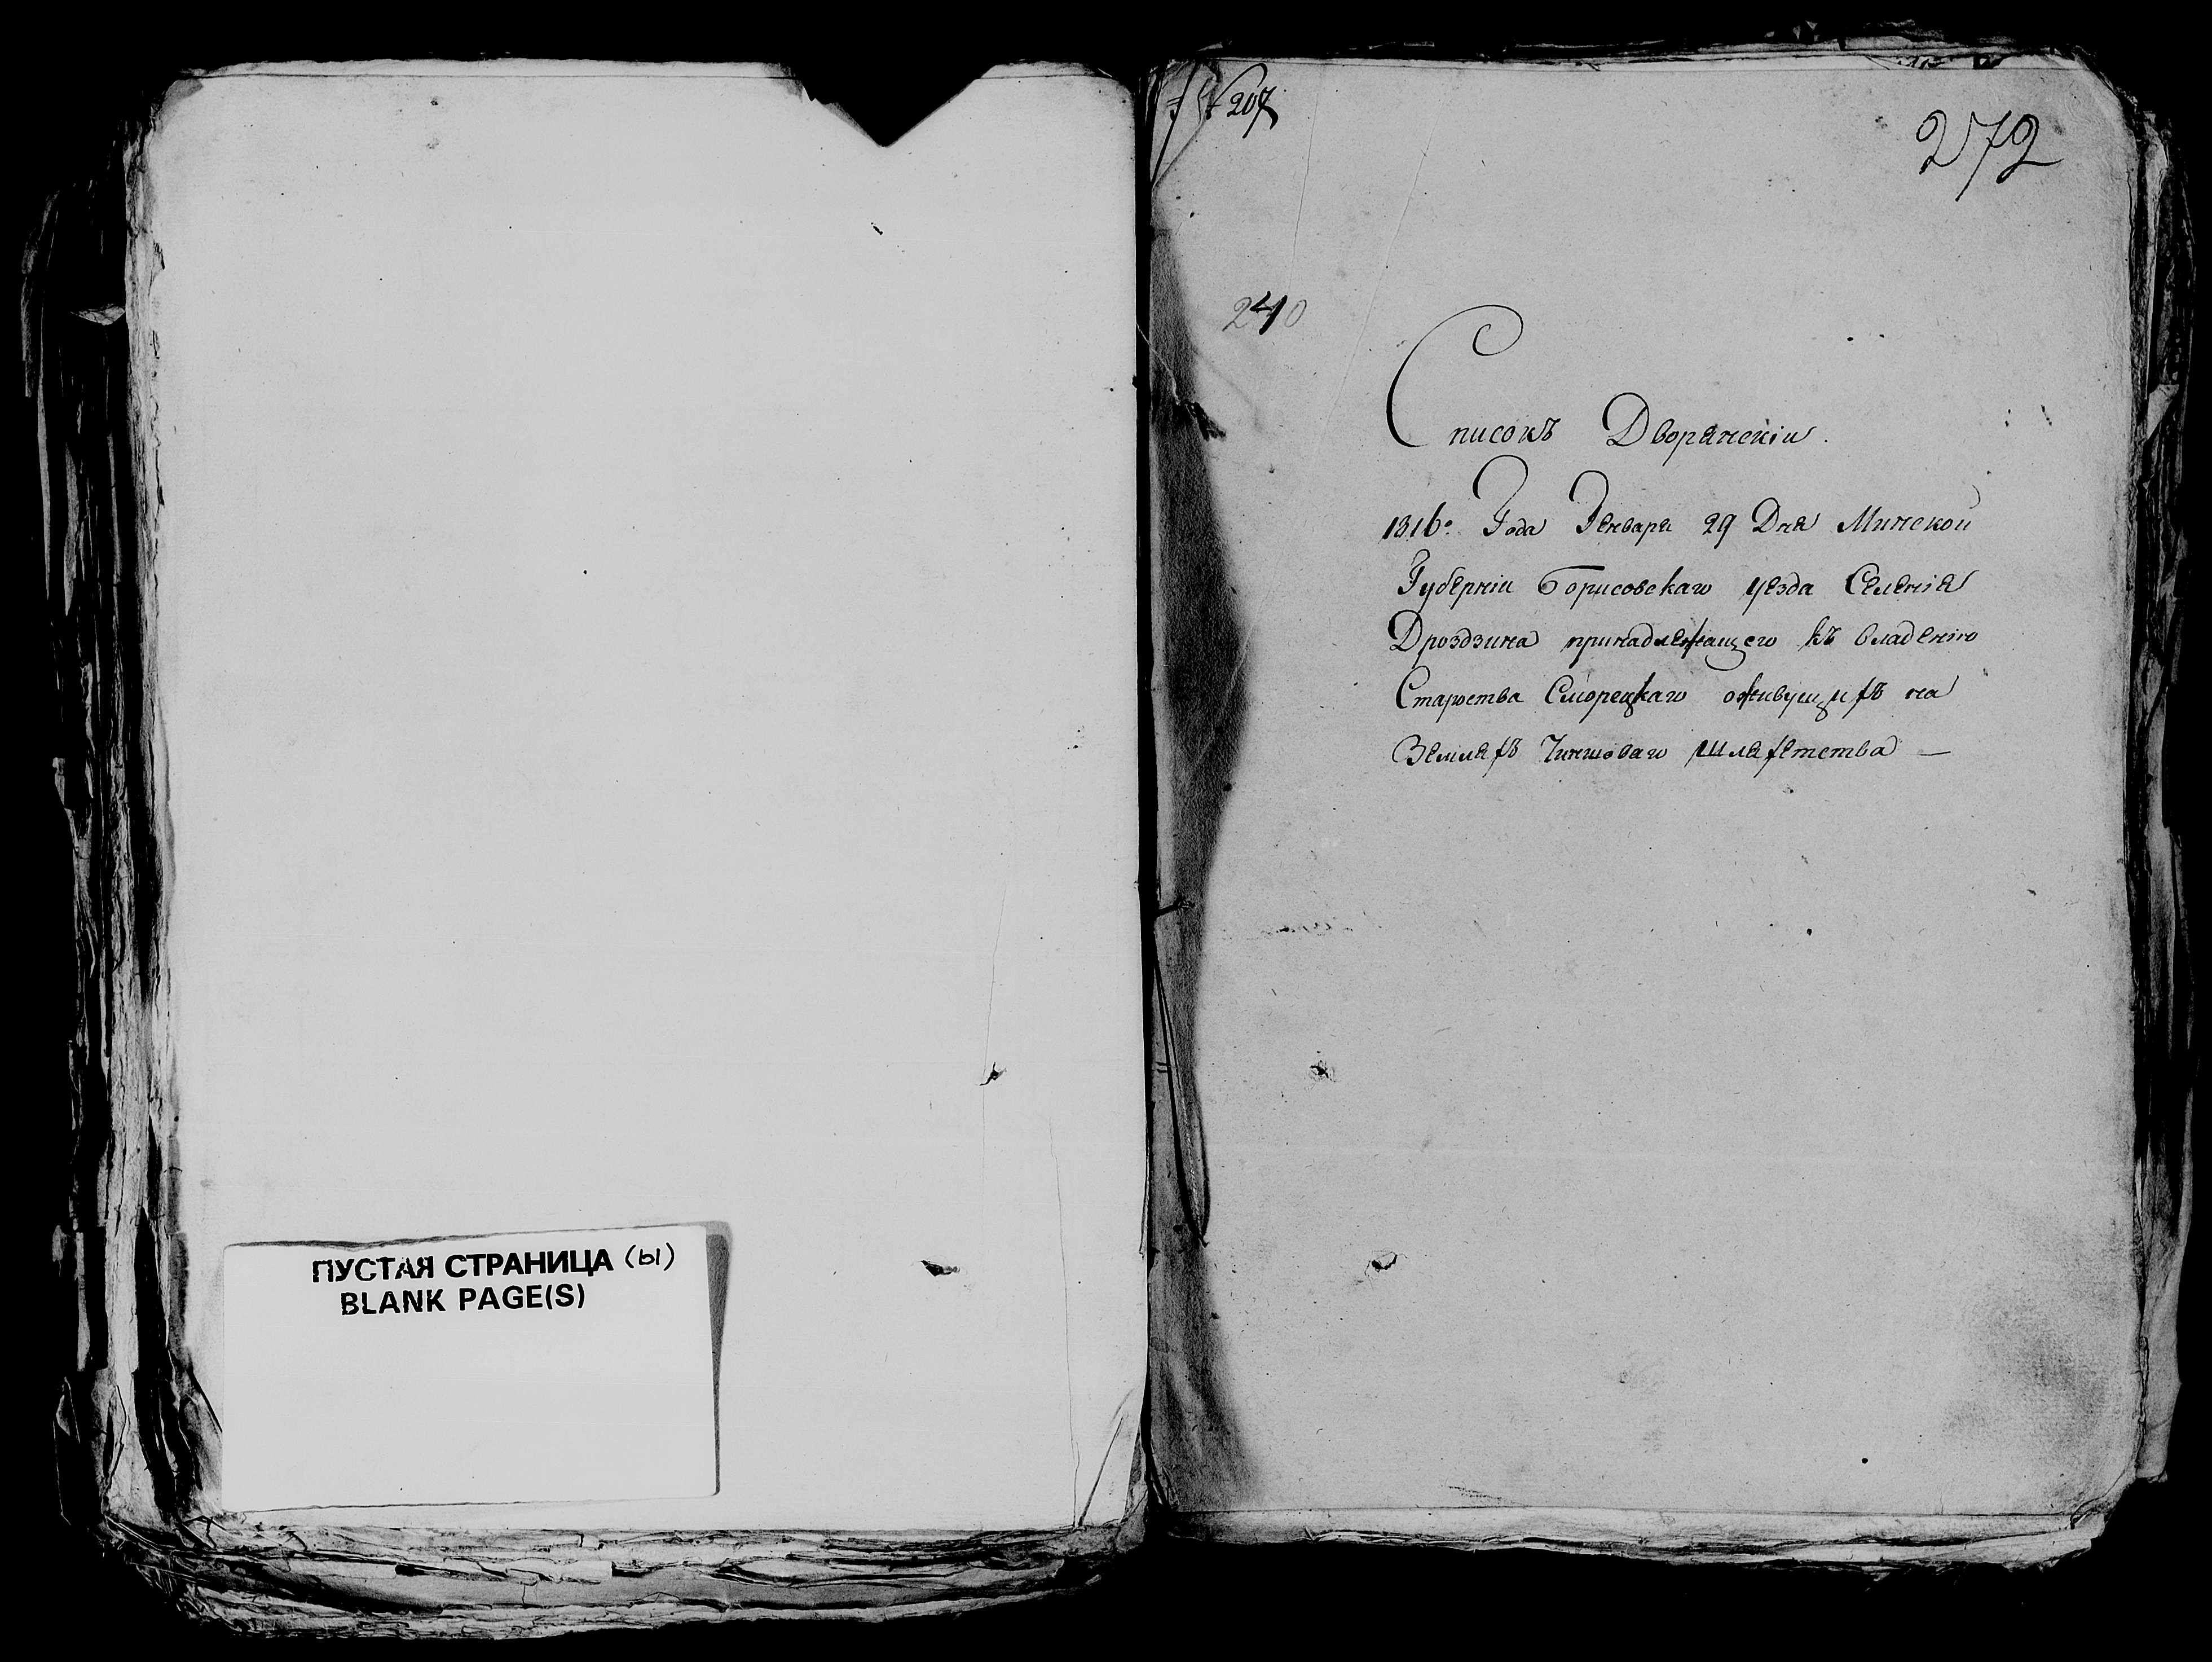 ПУСТАЯ СТРАНИЦА (ы)
BLANK PAGE(S)
№ 207
272
240
Списокъ Дворянскій.
1816º. Года Генваря 29 Дня Минской
Губерніи Борисовскаго уезда Селенія
Дроздзина принадлежащего къ владенію
Староства Сморецкаго оживущихъ на
Земляхъ Чиншоваго Шляхетства —